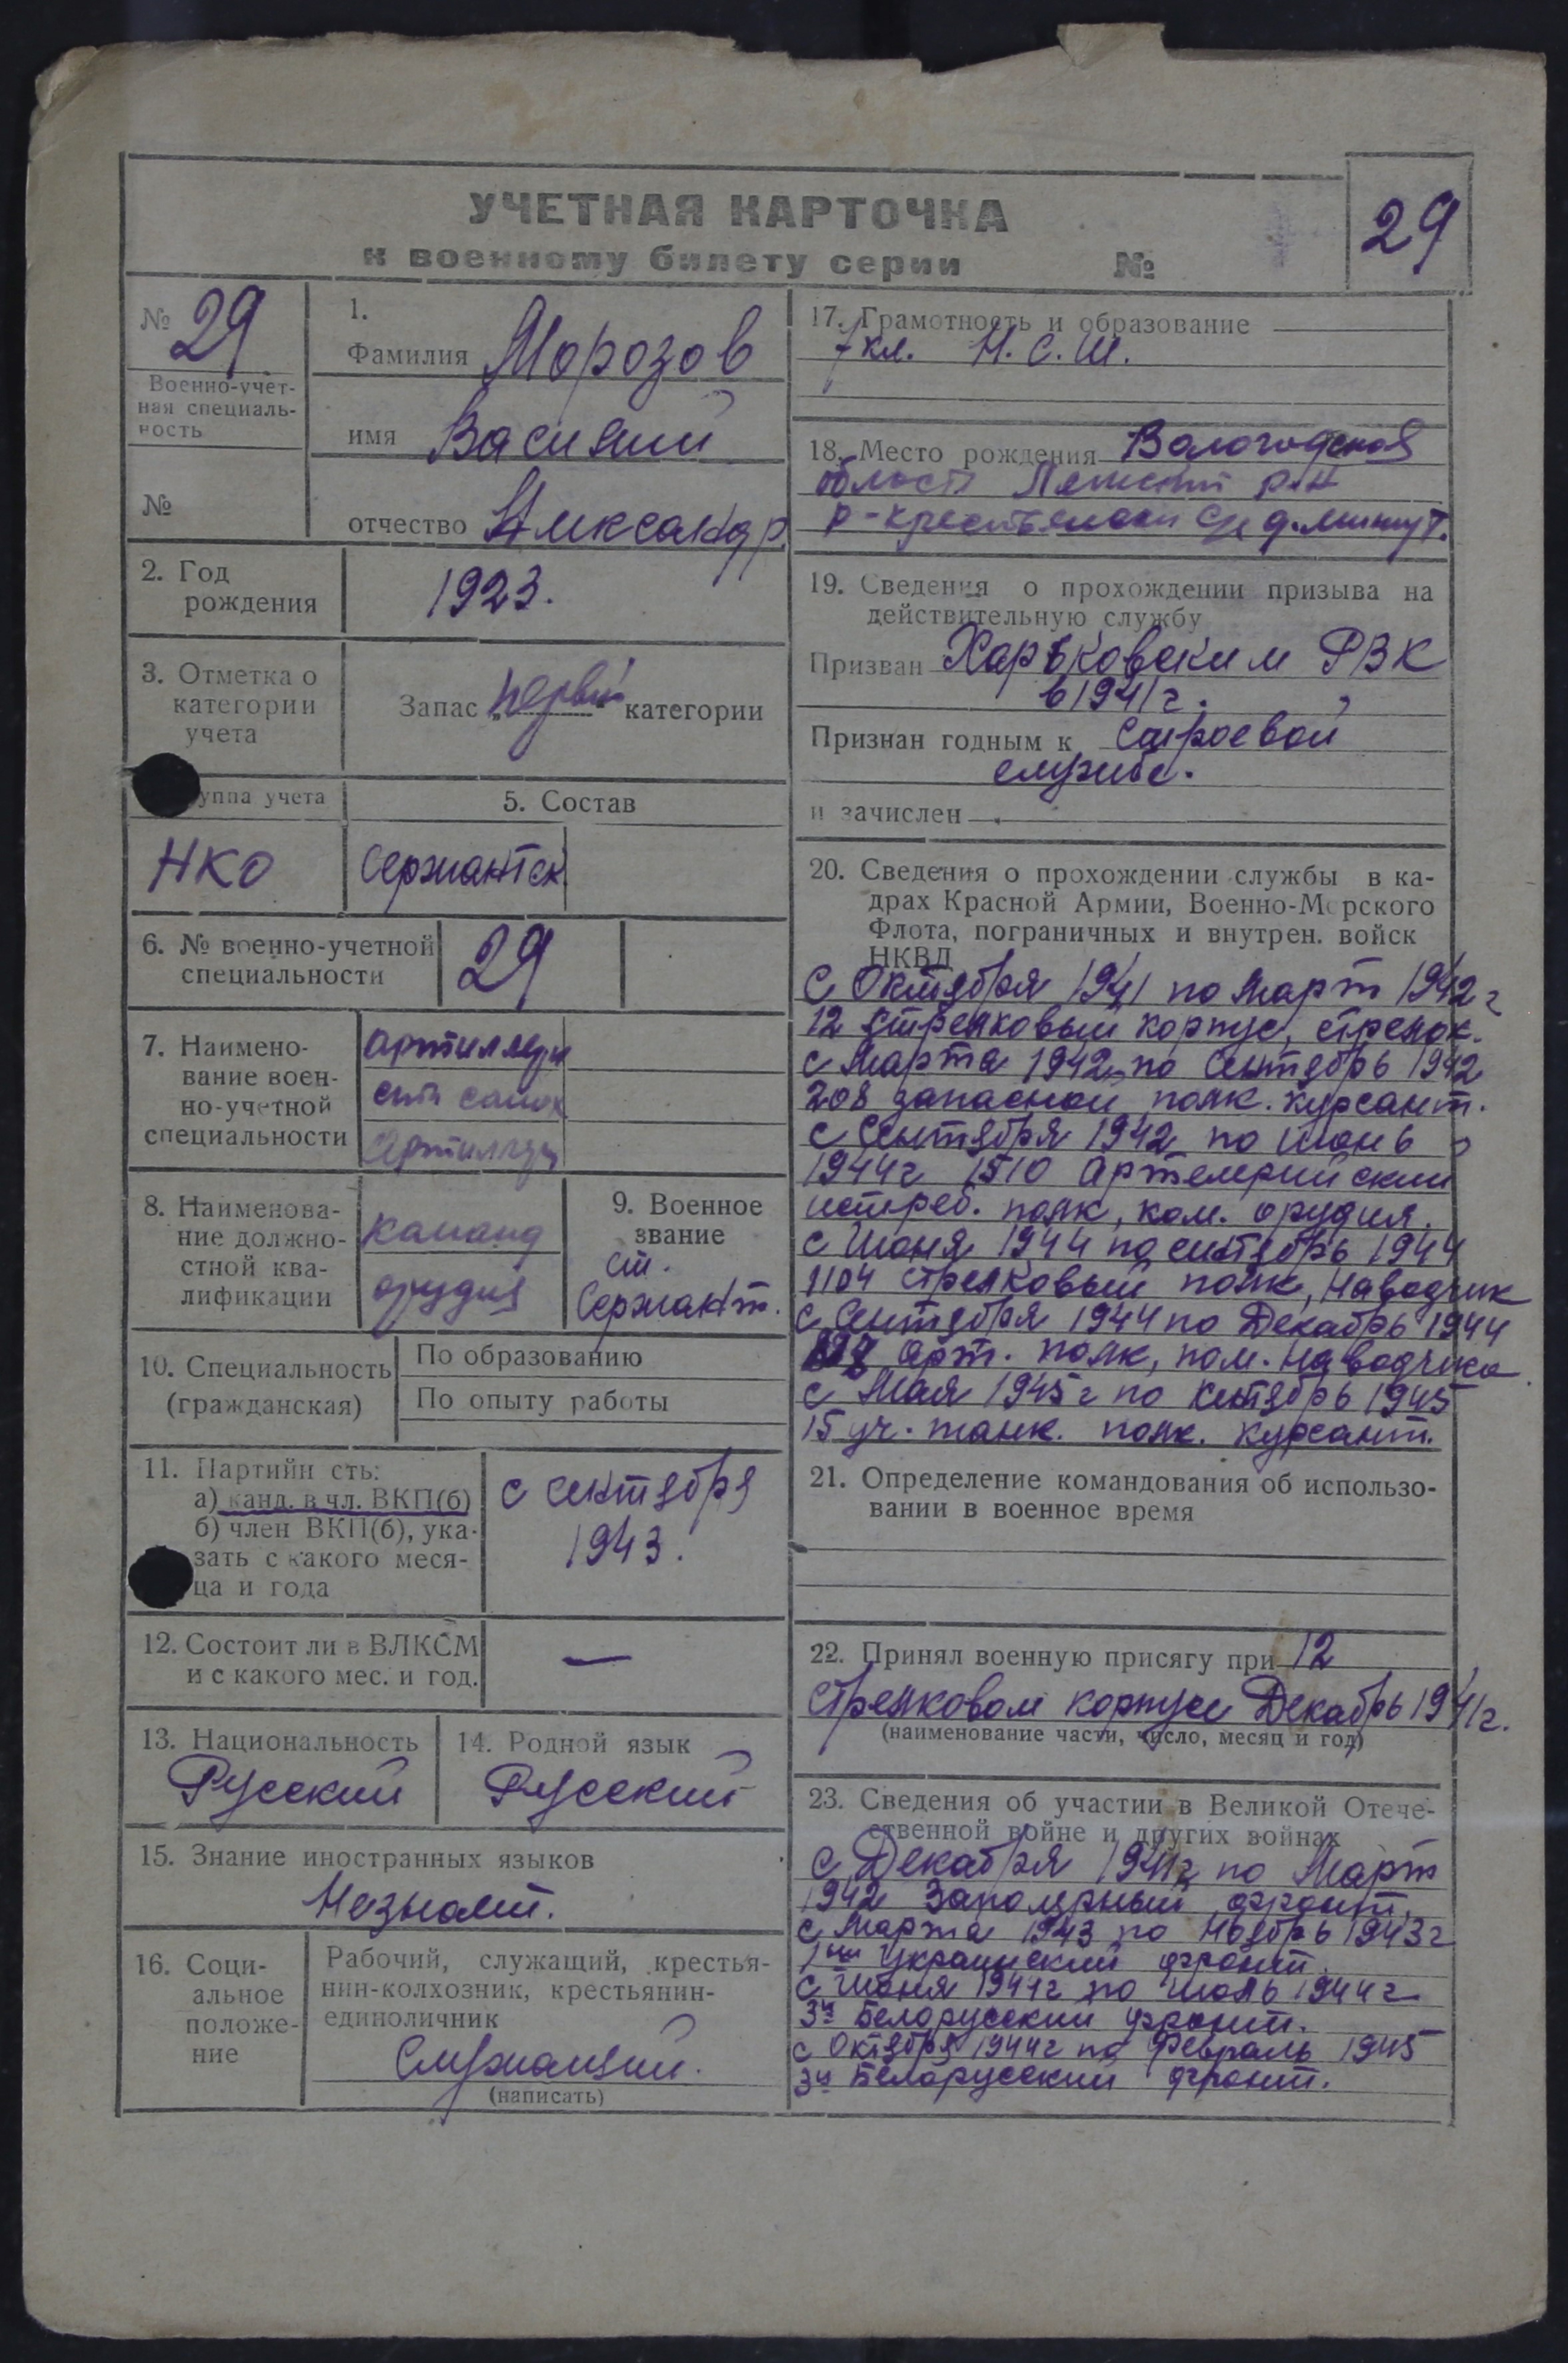 УЧЕТНАЯ КАРТОЧКА
к военному билету серии №
29
№ 29
Военно-учет-
ная специаль-
ность
№
1.
Фамилия Морозов
имя Василий
отчество Александр.
2. Год
рождения
1923.
3. Отметка о
категории
учета
Запас „первой“ категории
уппа учета
НКО
5. Состав
Сержантск
6. № военно-учетной
специальности
29
7. Наимено-
вание воен-
но-учетной
специальности
артиллери
артиллери
8. Наименова-
ние должно-
стной ква-
лификации
команд
орудия
9. Военное
звание
ст.
Сержант.
10. Специальность
(гражданская)
По образованию
По опыту работы
11. Партийн сть:
а) канд. в чл. ВКП(б)
б) член ВКП(б), ука-
зать с какого меся-
ца и года
с сентября
1943.
12. Состоит ли в ВЛКСМ
и с какого мес. и год.
—
13. Национальность
Русский
14. Родной язык
Русский
15. Знание иностранных языков
Незнает.
16. Соци-
альное
положе-
ние
Рабочий, служащий, крестья-
нин-колхозник, крестьянин-
единоличник
Служащий.
(написать)
17. Грамотность и образование
7 кл. Н. С. Ш.
18. Место рождения Вологодская
область р-н
р-
19. Сведения о прохождении призыва на
действительную службу
Призван Харьковским РВК
в 1941 г.
Признан годным к строевой
службе.
и зачислен
20. Сведения о прохождении службы в ка-
драх Красной Армии, Военно-Морского
Флота, пограничных и внутрен. войск
НКВД
С Октября 1941 по Март 1942 г
12 стрелковый корпус, стрелок.
с Марта 1942 по Сентябрь 1942
208 запасной полк. курсант.
с Сентября 1942 по июнь
1944 г 1510 Артелерийский
истреб. полк, ком. орудия.
с Июня 1944 по сентябрь 1944
1104 стрелковый полк, наводчик
с Сентября 1944 по Декабрь 1944
арт. полк, пом. наводчика
с Мая 1945 г по сентябрь 1945
15 уч. танк. полк. курсант.
21. Определение командования об использо-
вании в военное время
22. Принял военную присягу при 12
стрелковом корпусе Декабрь 1941 г.
(наименование части, число, месяц и год)
23. Сведения об участии в Великой Отече-
ственной войне и других войнах
с Декабря 1941 г по Март
1942 Заполярный фронт.
с Марта 1943 по Ноябрь 1943 г
1ый Украинский фронт.
с Июня 1944 г по июль 1944 г
3й Белорусский фронт.
с Октября 1944 г по Февраль 1945
3й Белорусский фронт.